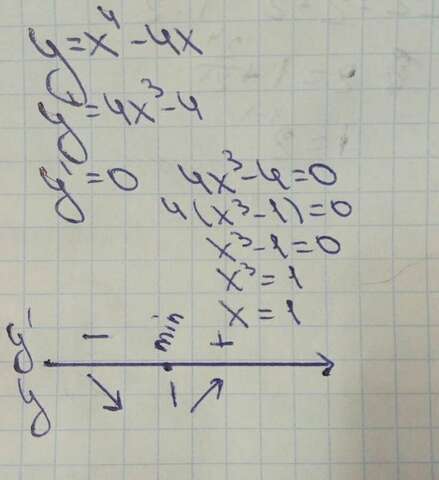 y=x⁴-4x
y'=4x³-4
y'=0 4x³-4=0
4(x³-1)=0
x³-1=0
x³=1
x=1
y' - min +
y ↘ 1 ↗